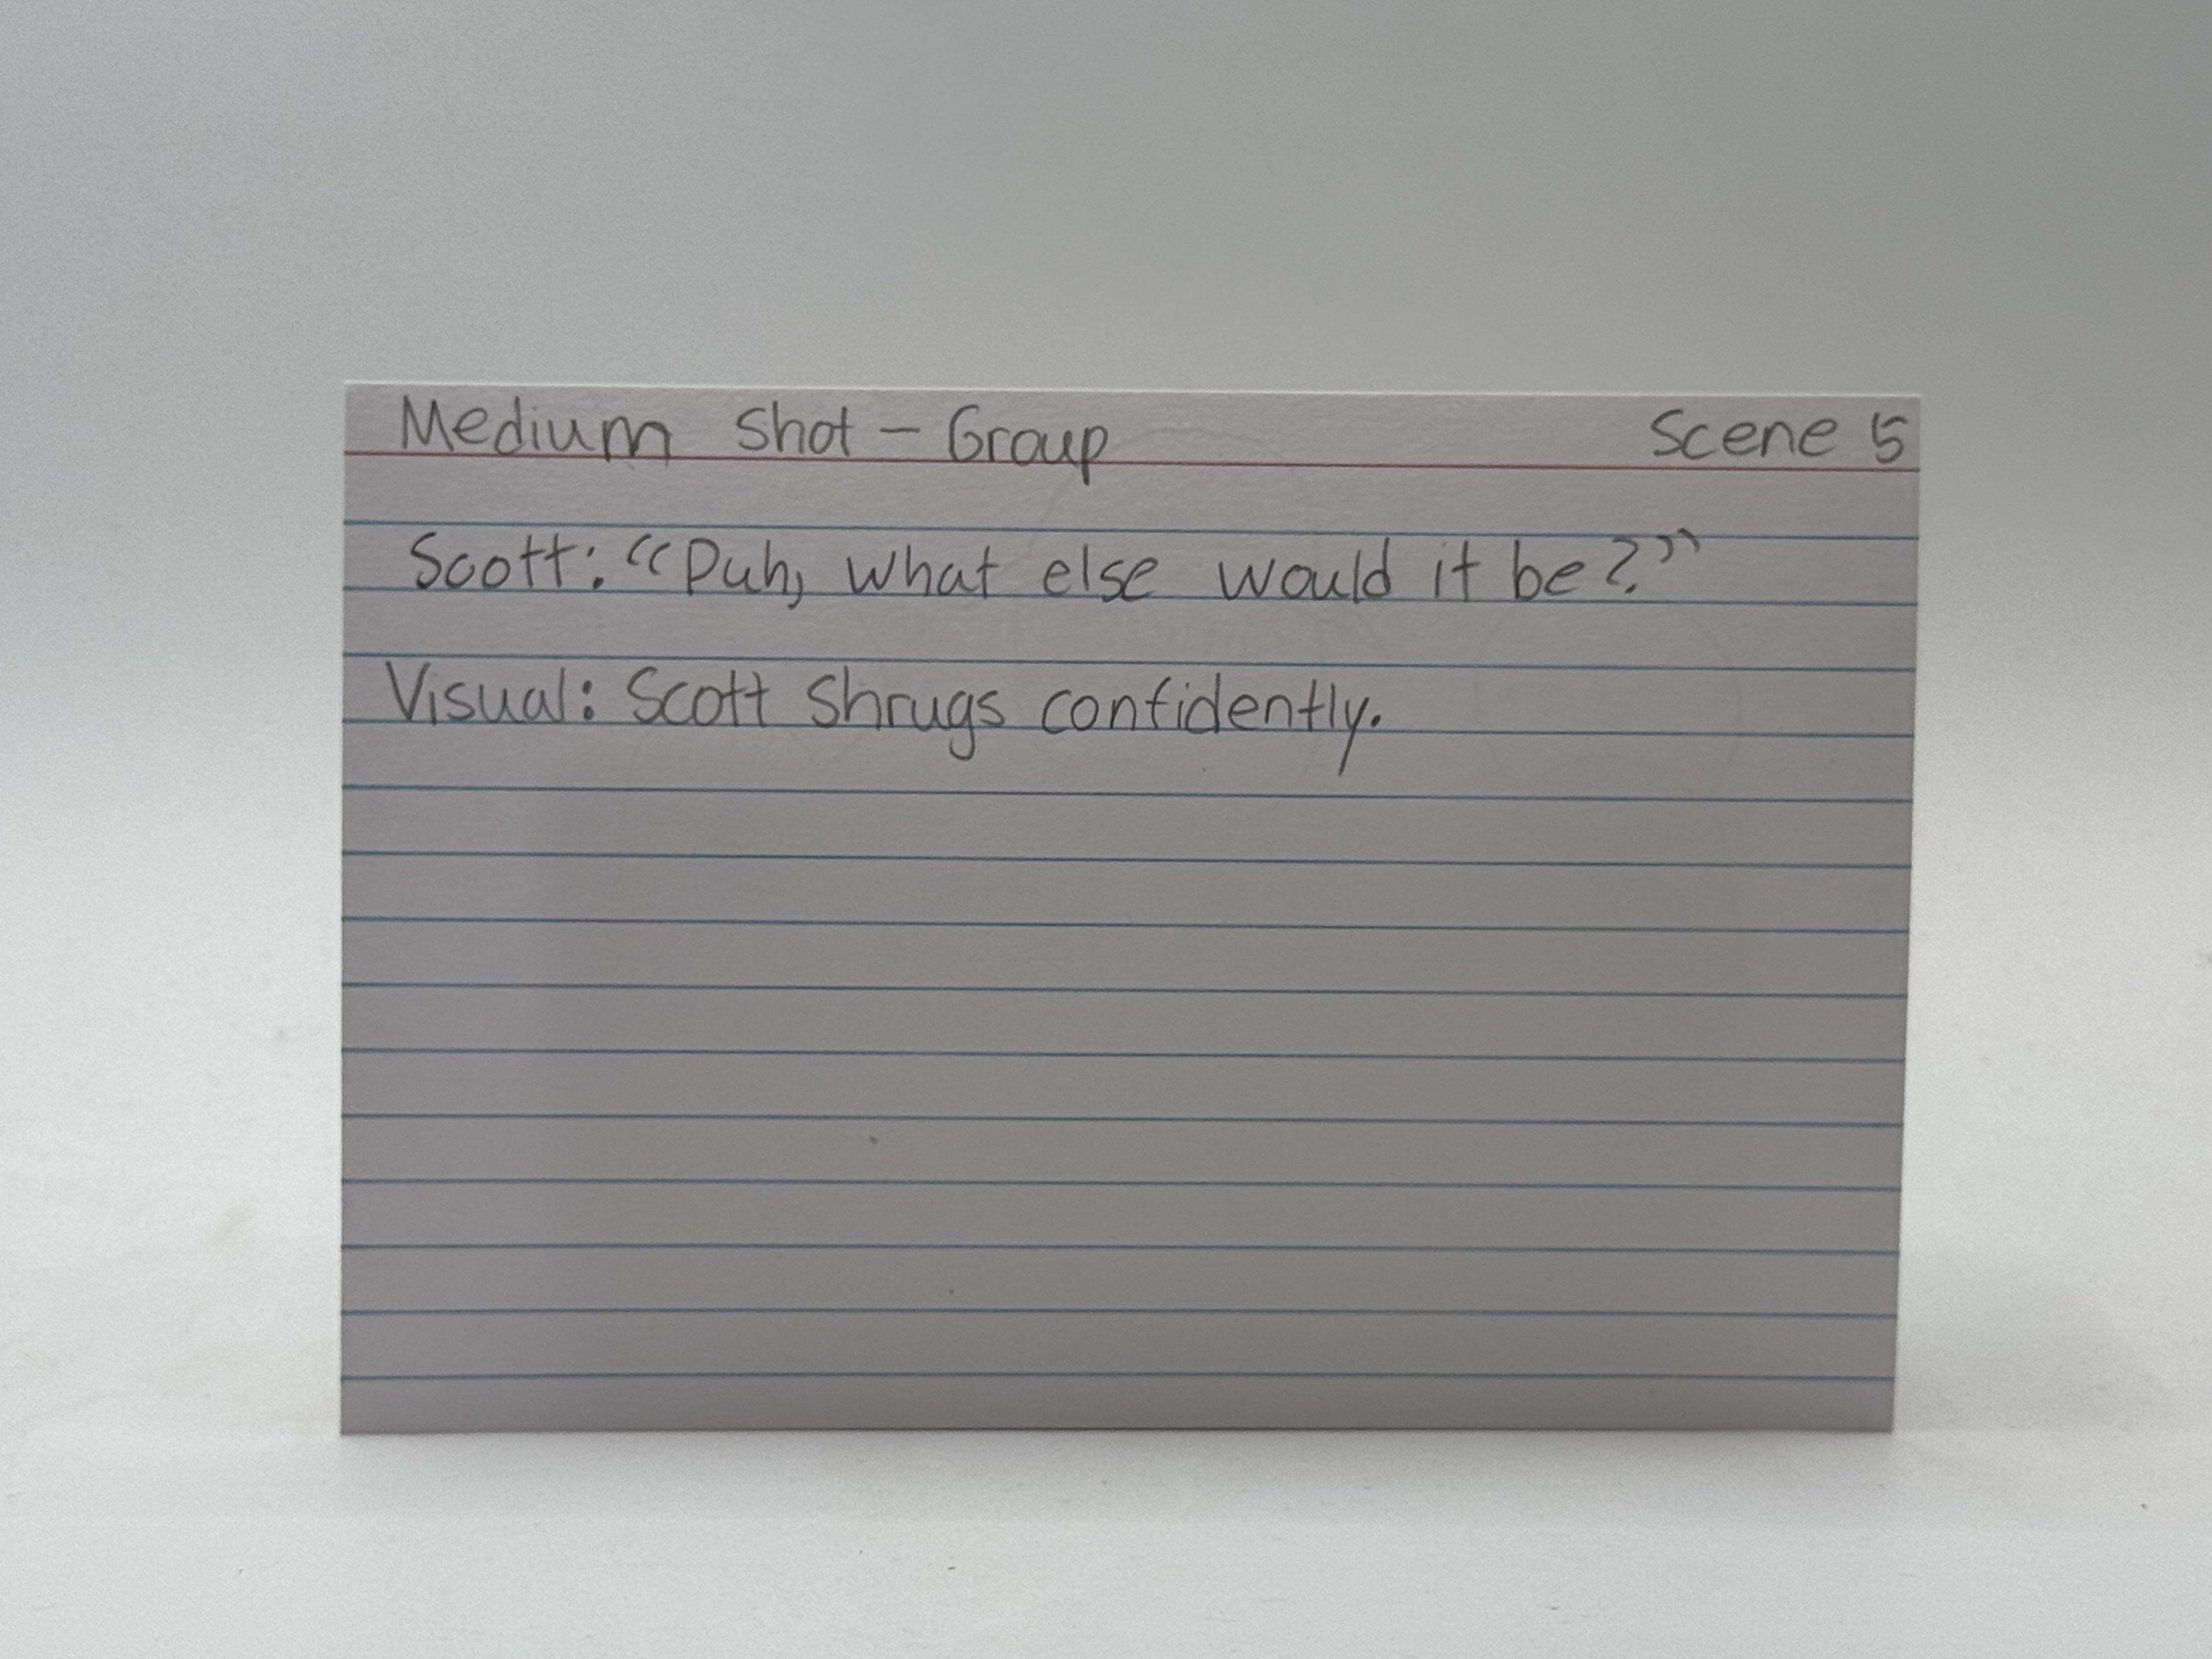 Medium Shot – Group Scene 5
Scott: “Duh, what else would it be?”
Visual: Scott shrugs confidently.